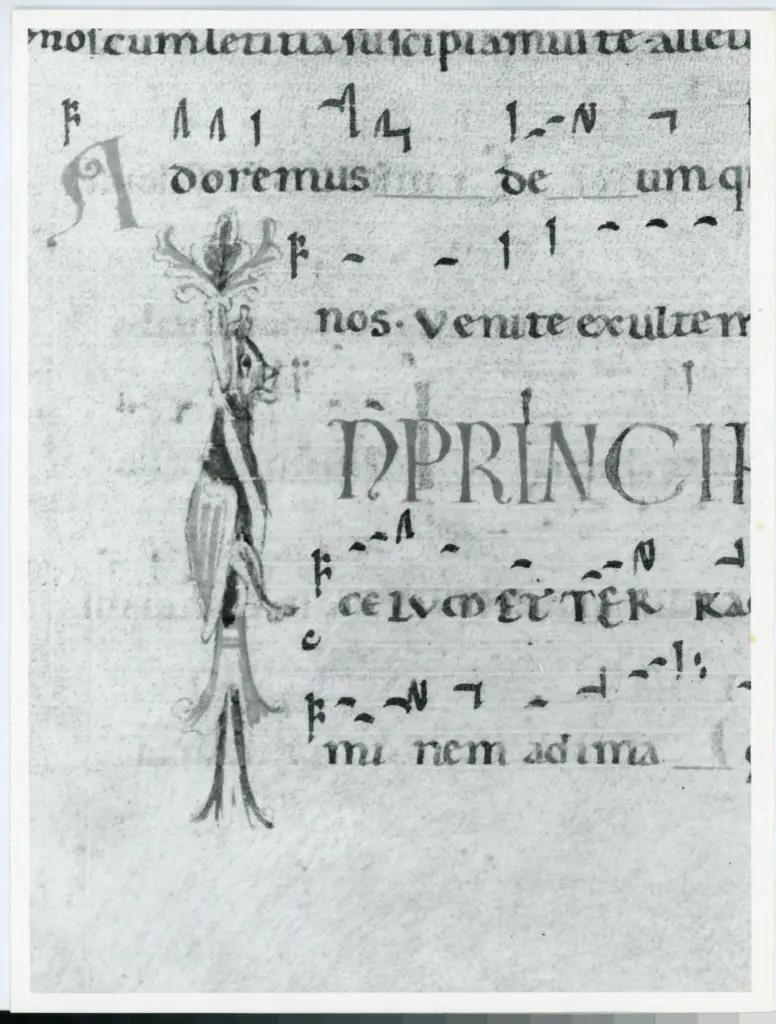 noscumletitia suscipiamus te alleu
Adoremus de um q
nos. Venite exultem
IN PRINCIP
CELUM ET TERR
mi nem adima